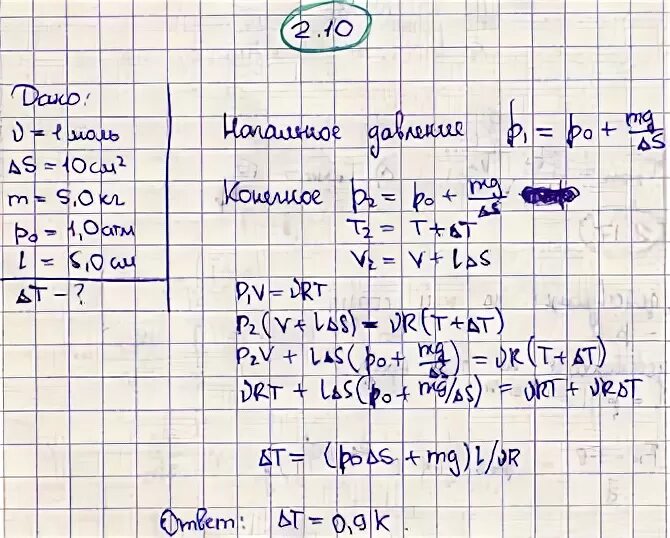 2.10
Дано:
ν = 1 моль
ΔS = 10 см²
m = 5,0 кг
p₀ = 1,0 атм
l = 5,0 см
ΔT - ?
Начальное давление p₁ = p₀ + mg/ΔS
Конечное p₂ = p₀ + mg/ΔS
T₂ = T + ΔT
V₂ = V + lΔS
P₁V = νRT
P₂(V + lΔS) = νR(T + ΔT)
P₂V + lΔS(p₀ + mg/ΔS) = νR(T + ΔT)
νRT + lΔS(p₀ + mg/ΔS) = νRT + νRΔT
ΔT = (p₀ΔS + mg)l/νR
Ответ: ΔT = 0,9 К.